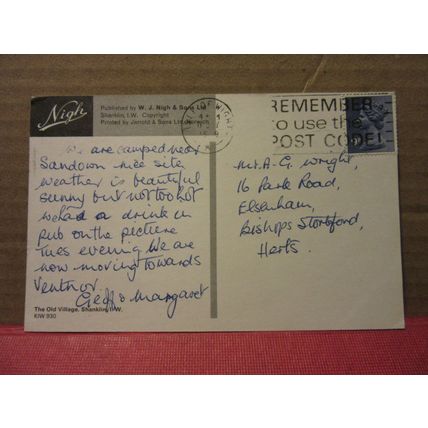 Nigh
Published by W. J. Nigh & Sons Ltd
Shanklin, I.W. Copyright
Printed by Jarrold & Sons Ltd, Norwich
ISLE OF WIGHT
REMEMBER
to use the
POST CODE!
We are camped near
Sandown nice site
weather is beautiful
sunny but not too hot
we had a drink in
pub on the picture
Tues evening We are
now moving towards
Ventnor.
Geoff & Margaret
Mr. A. G. Wright,
16 Park Road,
Elsenham,
Bishops Stortford,
Herts.
The Old Village, Shanklin, I.W.
KIW 930